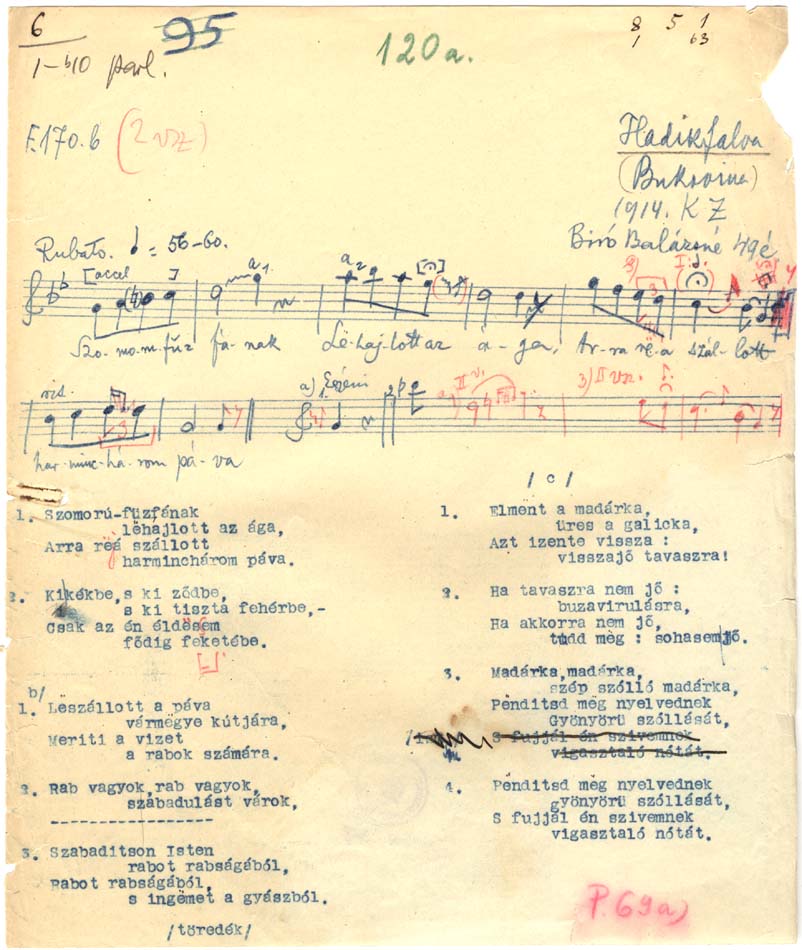 6
95
120a.
8 5 1
1 63
1-b10 parl.
F.170.b (2 vsz)
Hadikfalva
(Bukovina)
1914. K Z
Biró Balázsné 49 é
Rubato. ♩ = 56-60.
[accel ]
a1.
a2
3)
I.
Szo-mo-rm fűz fá-nak Le-haj-lott az á-ga, Ar-ra rë-a szál-lott
vis.
3
a)
II. v.
3) II vsz.
har-minc-há-rom pá-va
1. Szomorú-fűzfának
lëhajlott az ága,
Arra rëá szállott
harminchárom páva.
2. Kikékbe,s ki ződbe,
s ki tiszta fehérbe,-
Csak az én éldësëm
fődig feketébe.
b/
1. Lëszállott a páva
vármëgye kútjára,
Meriti a vizet
a rabok számára.
2. Rab vagyok,rab vagyok,
szabadulást várok,
-----------------
3. Szabaditson Isten
rabot rabságából,
Rabot rabságából,
s ingëmet a gyászból.
/töredék/
/ c /
1. Elment a madárka,
üres a galicka,
Azt izente vissza :
visszajő tavaszra!
2. Ha tavaszra nem jő :
buzavirulásra,
Ha akkorra nem jő,
tudd mëg : sohasem jő.
3. Madárka,madárka,
szép szólló madárka,
Pënditsd mëg nyelvednek
Gyönyörü szóllását,
S fujjál én szivemnek
vigasztaló nótát.
4. Pënditsd mëg nyelvednek
gyönyörü szóllását,
S fujjál én szivemnek
vigasztaló nótát.
P.69a)